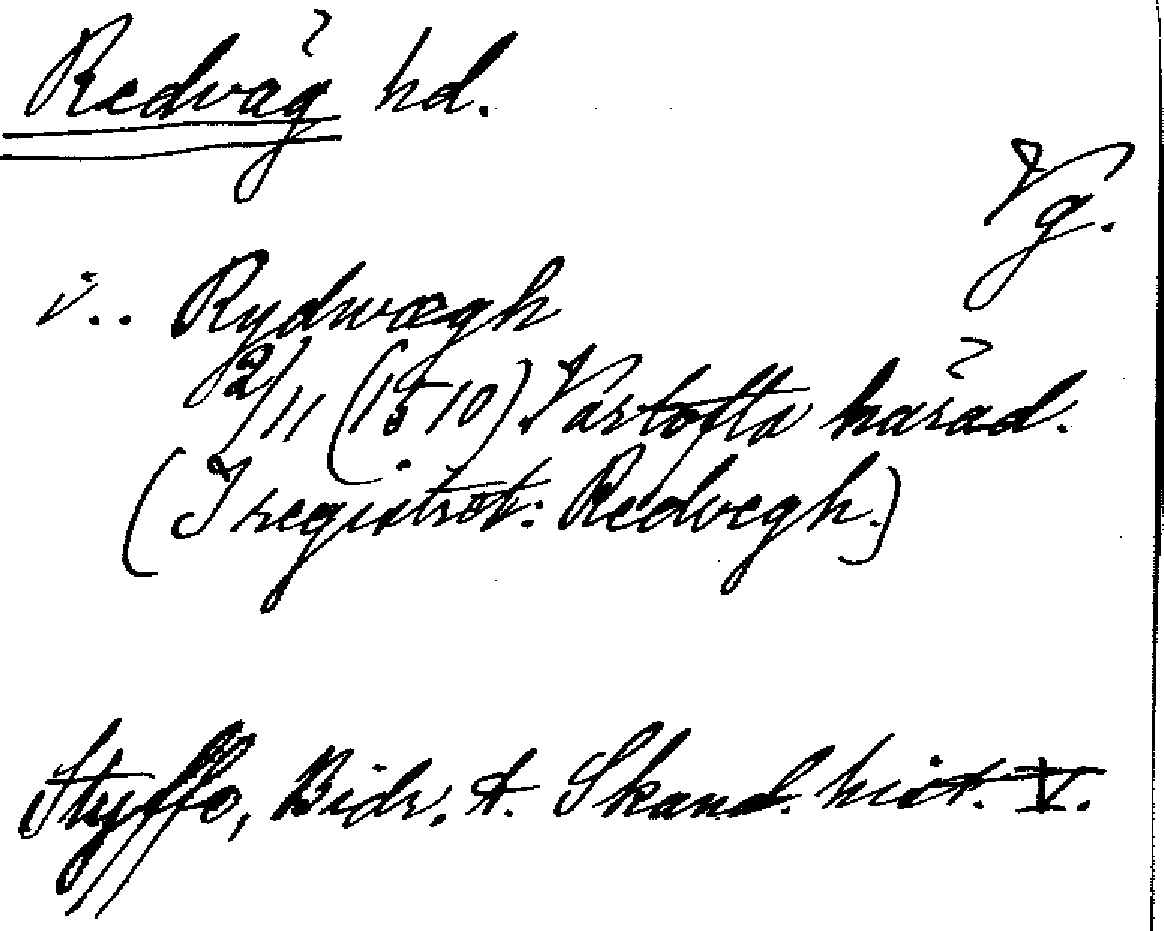 Redväg hd.
Vg.
i.. Rydwægh
2/11 (1510). Vartofta härad.
(I registret: Redvegh.)
Styffe, Bidr. t. Skand. hist. V.